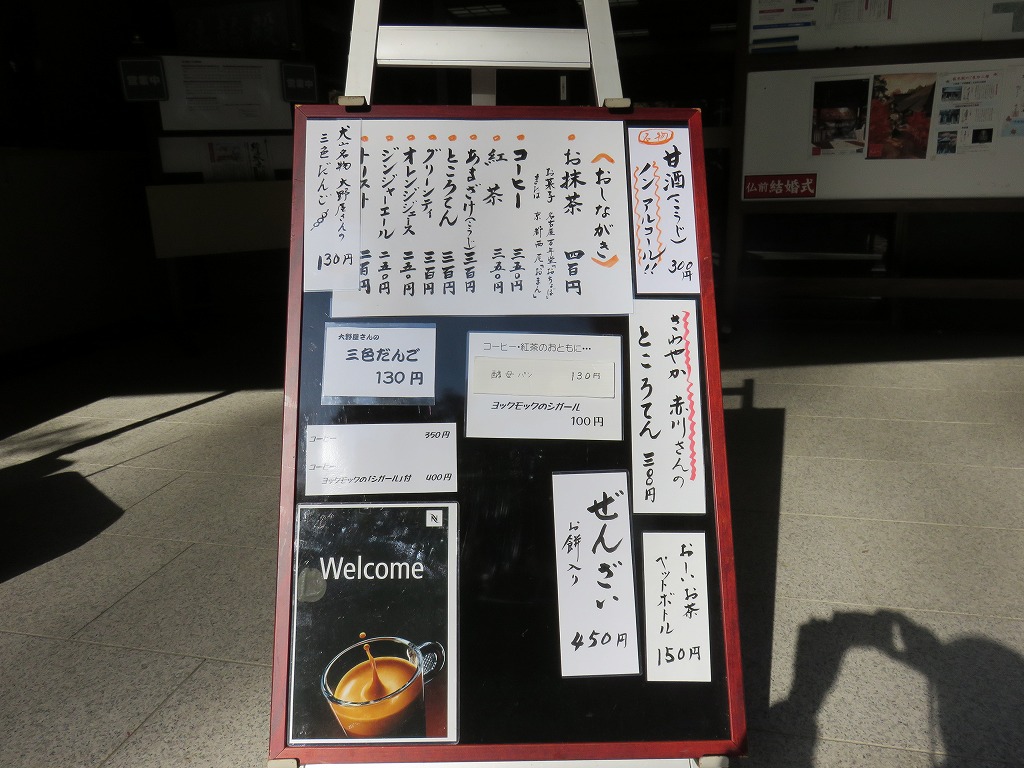 名物
甘酒(こうじ)
ノンアルコール!!
300円
〈おしながき〉
お抹茶 四百円
お菓子
または
コーヒー 三五〇円
紅茶 三五〇円
あまざけ(こうじ) 三百円
ところてん 三百円
グリーンティ 三百円
オレンジジュース 二五〇円
ジンジャーエール 二五〇円
トースト 二百円
犬山名物 大野屋さんの
三色だんご
130円
大野屋さんの
三色だんご
130円
コーヒー・紅茶のおともに…
酵母パン 130円
ヨックモックのシガール
100円
コーヒー 350円
コーヒー
ヨックモックの「シガール」付 400円
さわやか 赤川さんの
ところてん 三〇〇円
ぜんざい
お餅入り
450円
おーいお茶
ペットボトル
150円
Welcome
仏前結婚式
営業中